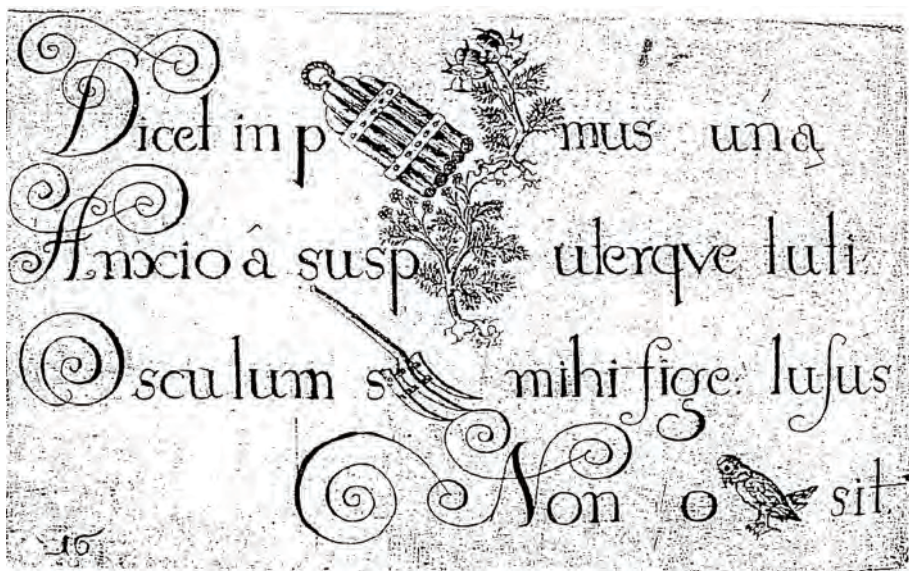 Dicet in p mus una
Anxcio â susp uterqve tuti
Osculum s mihi fige: lusus
Non o sit.
16